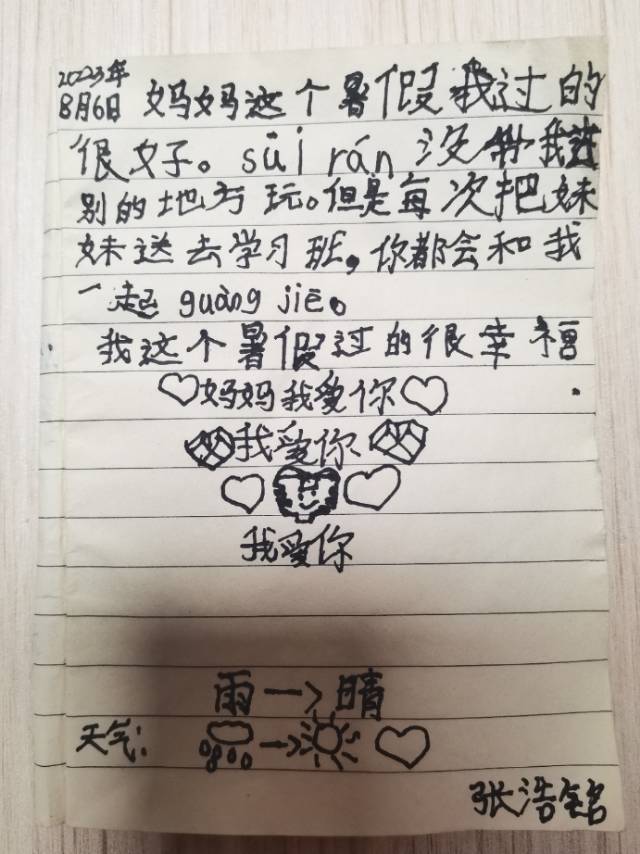 2023年
8月6日 妈妈这个暑假我过的
很好。suī rán 没带我进
别的地方玩。但是每次把妹
妹送去学习班,你都会和我
一起 guàng jiē。
我这个暑假过的很幸福
妈妈我爱你
我爱你
我爱你
雨→晴
天气:
张浩铭